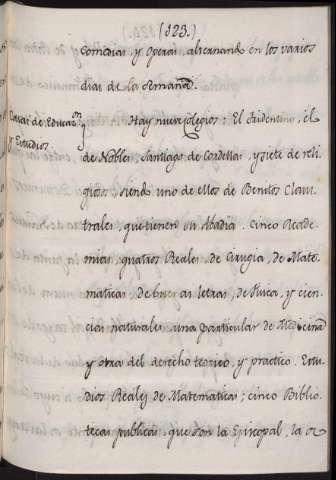 (123.)
Comedias, y Operas, alternando en los varios
dias de la semana.
Casas de Educacn
y Estudios.
Hay nueve colegios: El Tridentino, el
de Nobles, Santiago de Cordellas, y siete de reli-
giosos siendo uno de ellos de Benitos Claus-
trales, que tienen su Abadia. Cinco Acade-
mias, quatro Reales de Cirugia, de Mate-
maticas de buenas letras, de Fisica, y cien-
cias naturales una particular de Medicina
y otra del derecho teorico, y practico. Estu-
dios Reales de Matematicas; cinco Biblio-
tecas publicas, que son la Episcopal, la